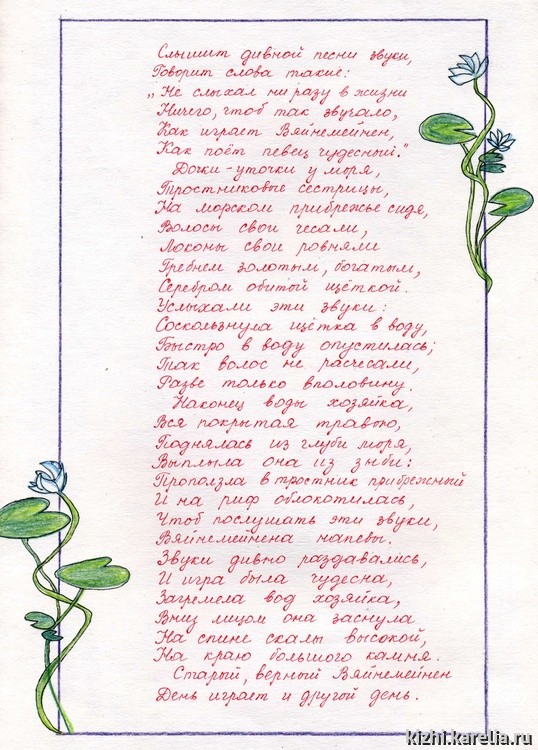 Слышит дивной песни звуки,
Говорит слова такие:
„Не слыхал ни разу в жизни
Ничего, чтоб так звучало,
Как играет Вяйнемейнен,
Как поёт певец чудесный."
Дочки-уточки у моря,
Тростниковые сестрицы,
На морском прибрежье сидя,
Волосы свои чесали,
Локоны свои ровняли
Гребнем золотым, богатым,
Серебром обитой щёткой.
Услыхали эти звуки:
Соскользнула щётка в воду,
Быстро в воду опустилась;
Так волос не расчесали,
Разве только вполовину.
Наконец воды хозяйка,
Вся покрытая травою,
Поднялась из глуби моря,
Выплыла она из зыби:
Проползла в тростник прибрежный
И на риф облокотилась,
Чтоб послушать эти звуки,
Вяйнемейнена напевы.
Звуки дивно раздавались,
И игра была чудесна,
Загремела вод хозяйка,
Вниз лицом она заснула
На спине скалы высокой,
На краю большого камня.
Старый, верный Вяйнемейнен
День играет и другой день.
kizhi.karelia.ru